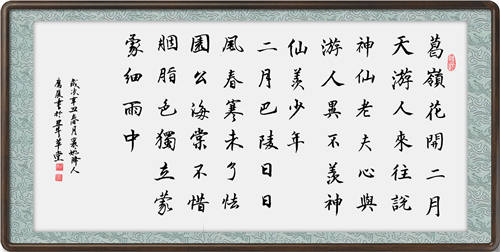 葛嶺花開二月
天游人來往說
神仙老夫心與
游人異不羨神
仙羨少年
二月巴陵日日
風春寒未了怯
園公海棠不惜
胭脂色獨立蒙
蒙細雨中
歲次辛丑春月